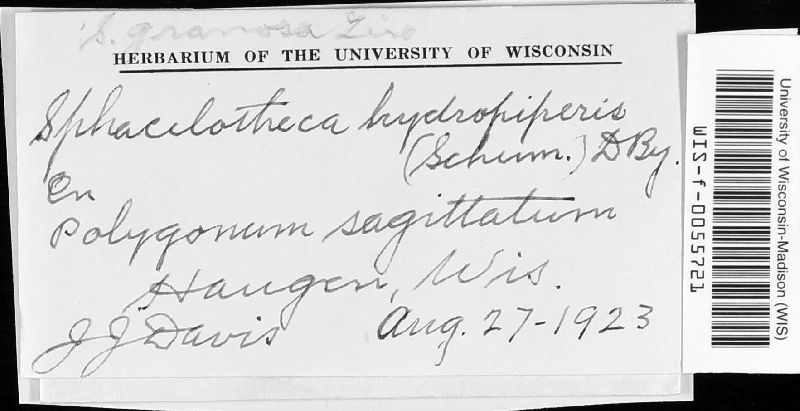 S. granosa Liro
HERBARIUM OF THE UNIVERSITY OF WISCONSIN
Sphacelotheca hydropiperis
(Schum.) D By.
On
Polygonum sagittatum
Haugen, Wis.
J J Davis Aug. 27-1923
University of Wisconsin-Madison (WIS)
WIS-f-0055721